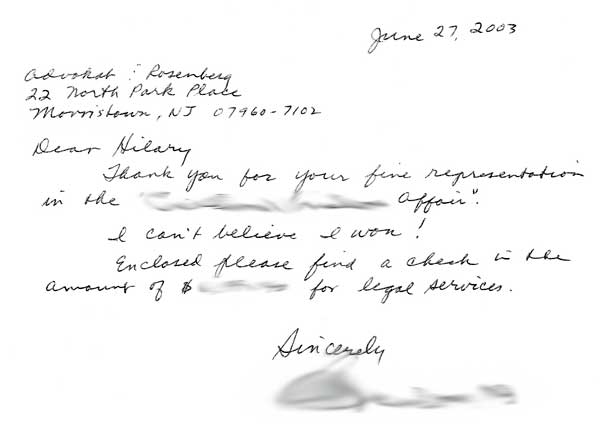 June 27, 2003
Advokat & Rosenberg
22 North Park Place
Morristown, NJ 07960-7102
Dear Hilary
Thank you for your fine representation
in the " Affair".
I can't believe I won!
Enclosed please find a check in the
amount of $ for legal services.
Sincerely